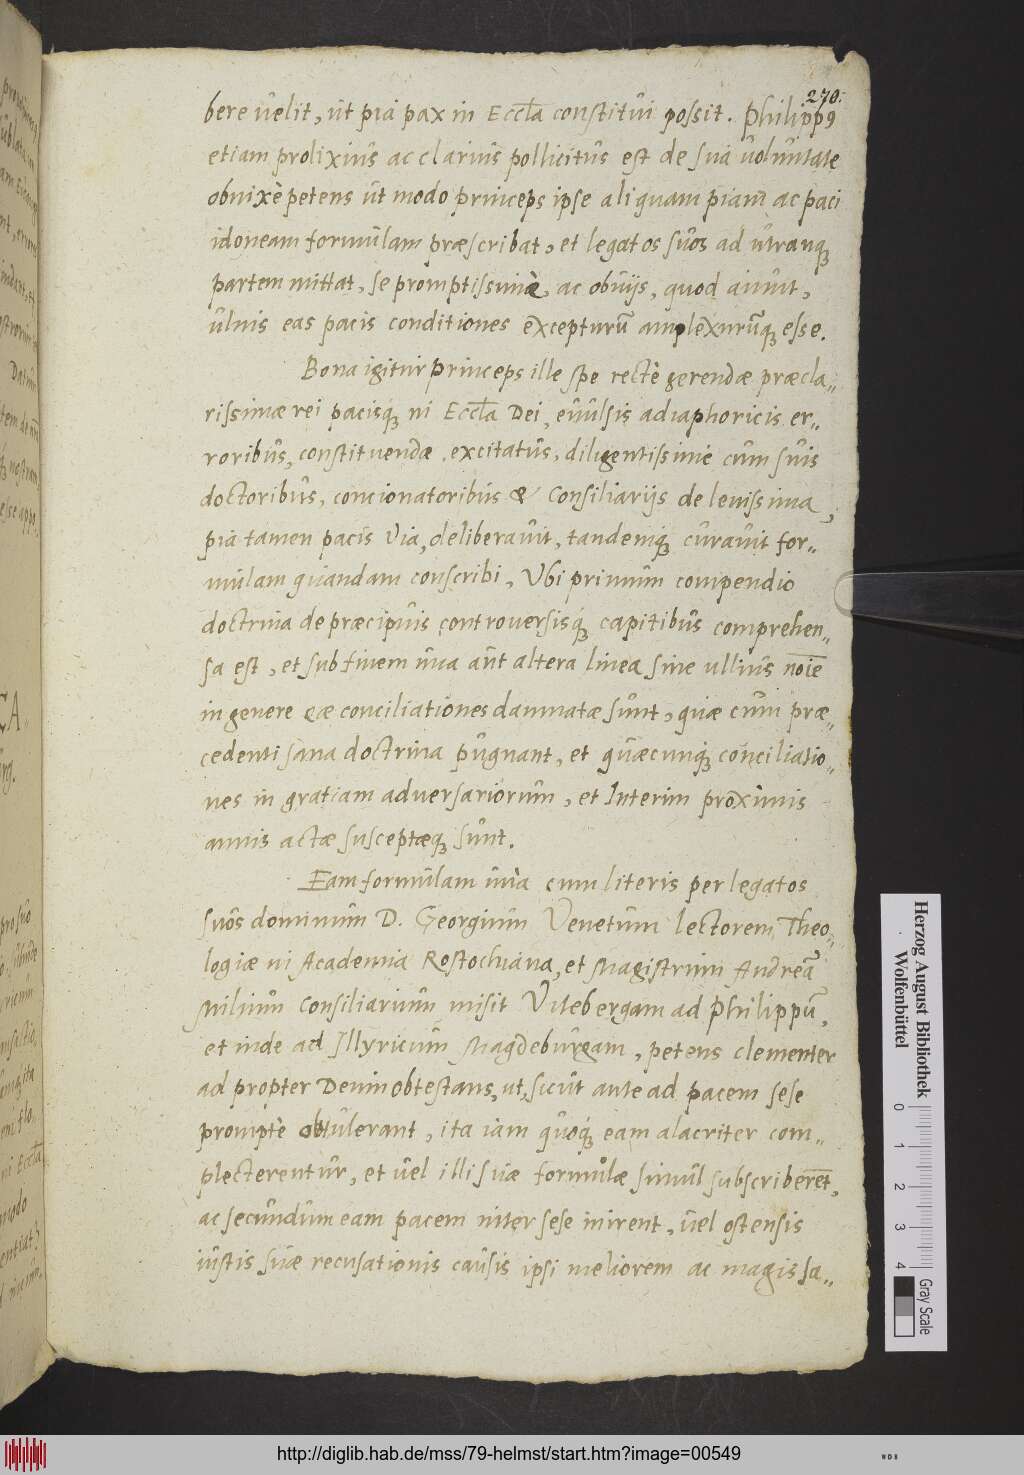 270.
bere velit, ut pia pax in Eccl̃a constitui possit. Philippꝰ
etiam prolixius ac clarius pollicitus est de sua voluntate
obnixè petens ut modo princeps ipse aliquam piam ac paci
idoneam formulam præscribat, et legatos suos ad utranqꝫ
partem mittat, se promptissimè, ac obvijs, quod aiunt,
ulnis eas pacis conditiones excepturũ amplexurũqꝫ esse.
Bona igitur princeps ille spe rectè gerendæ præcla„
rissimæ rei pacisqꝫ in Eccl̃a Dei, evulsis adiaphoricis er„
roribus, constituendæ excitatus, diligentissime cum suis
doctoribus, concionatoribus & Consiliarijs de levissima,
pia tamen pacis via, deliberavit, tandemqꝫ curavit for„
mulam quandam conscribi, Ubi primum compendio
doctrina de præcipuis controversisqꝫ capitibus comprehen„
sa est, et sub finem una aut altera linea sine ullius nom̃e
in genere eæ conciliationes damnatæ sunt, quæ cum præ„
cedenti sana doctrina pugnant, et quæcunqꝫ conciliatio„
nes in gratiam adversariorum, et Interim proximis
annis actæ susceptæqꝫ sunt.
Eam formulam unà cum literis per legatos
suos dominum D. Georgium Venetum lectorem Theo„
logiæ in Academia Rostochiana, et Magistrum Andreã
Milium Consiliarium misit Vitebergam ad Philippũ,
et inde ad Illyricum Magdeburgam, petens clementer
ad propter Deum obtestans, ut, sicut ante ad pacem sese
promptè obtulerant, ita iam quoqꝫ eam alacriter com„
plecterentur, et vel illi suæ formulæ simul subscriberẽt,
ac secundum eam pacem inter sese inirent, vel ostensis
iustis suæ recusationis causis ipsi meliorem ac magis sa„
Herzog August Bibliothek
Wolfenbüttel
0 1 2 3 4
Gray Scale
http://diglib.hab.de/mss/79-helmst/start.htm?image=00549